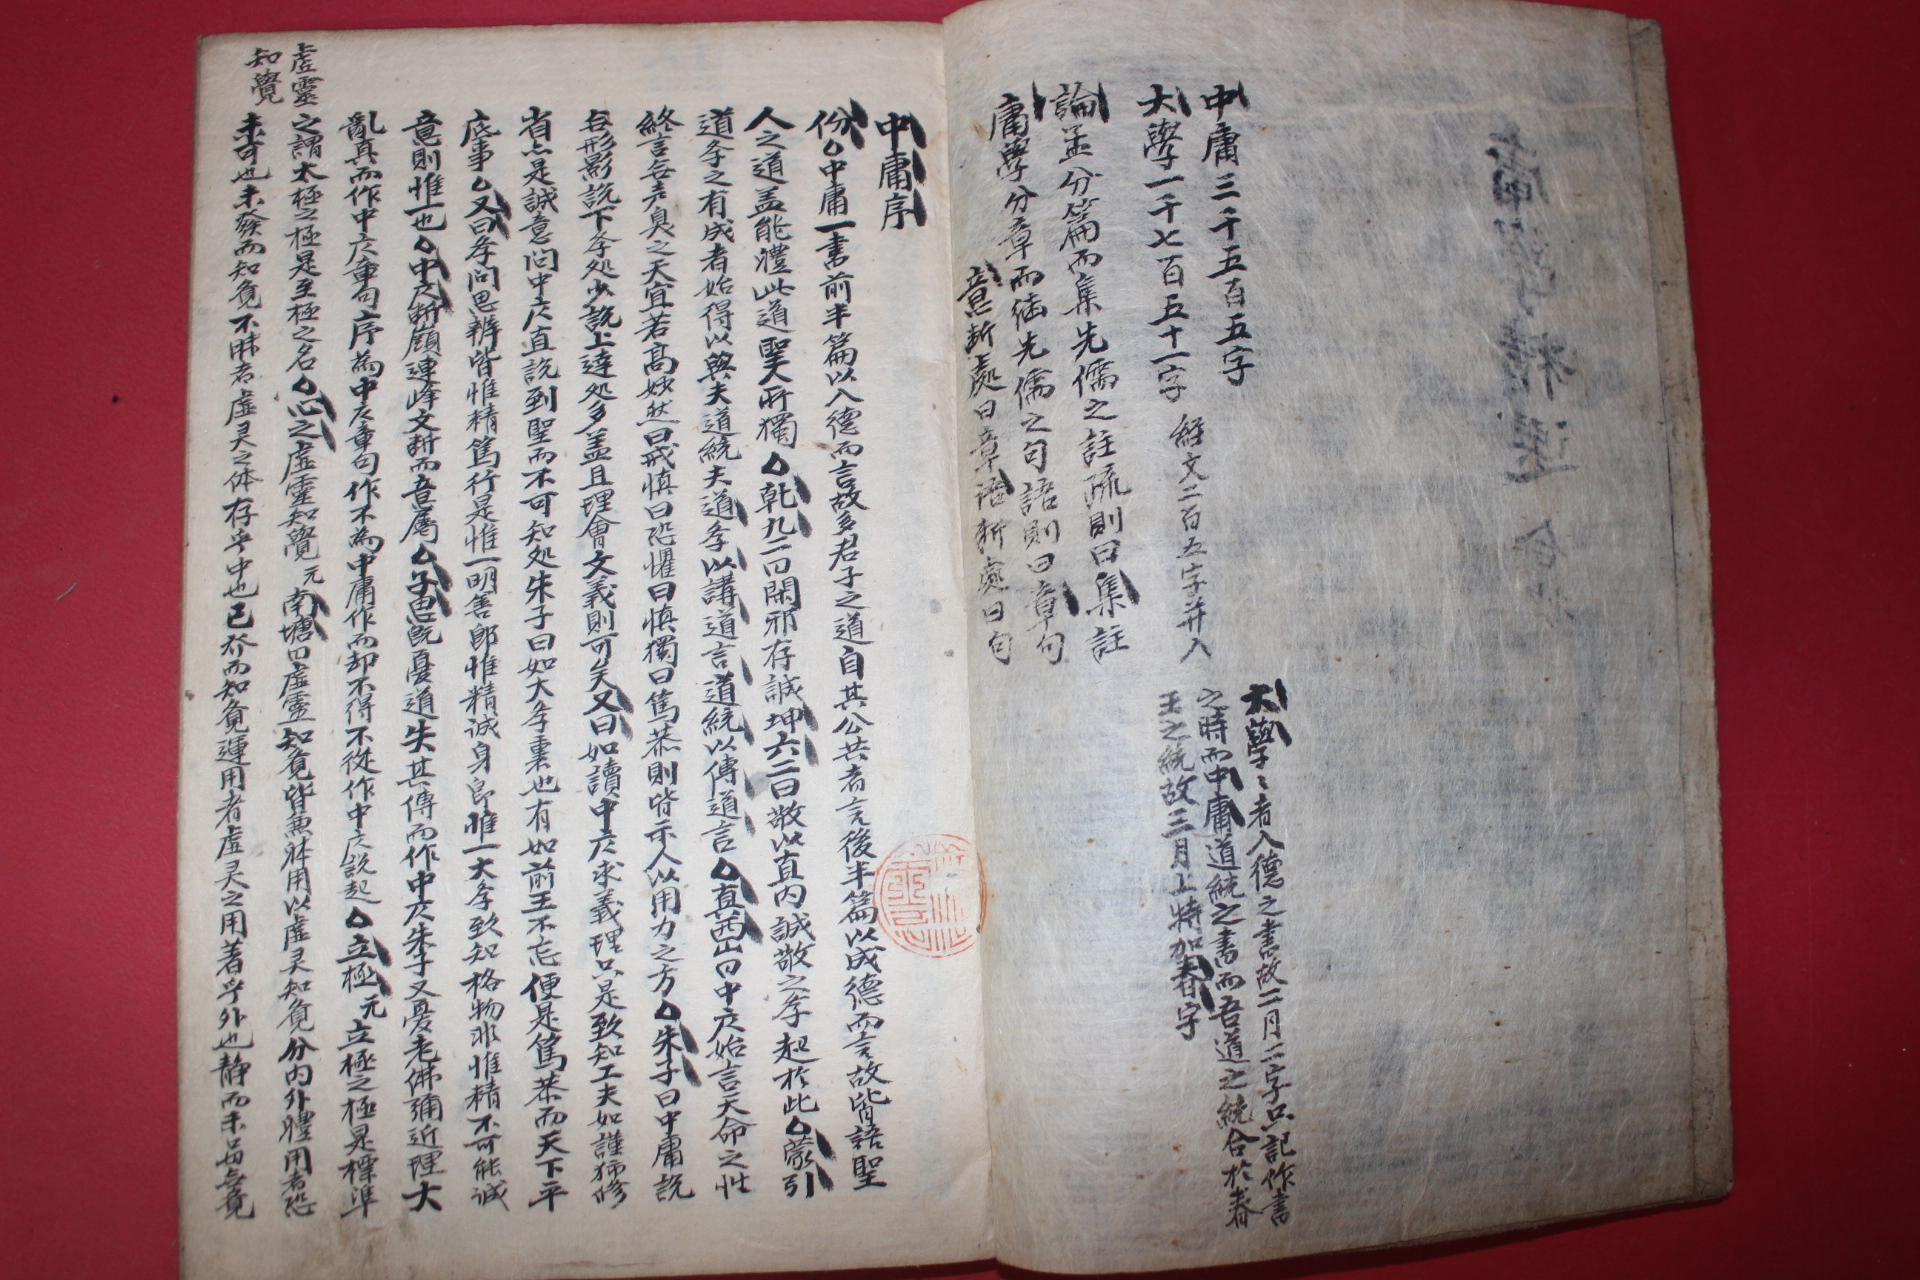 中庸三千五百五字
大學一千七百五十一字 經文二百五字并入
論孟分篇而集先儒之註疏則曰集註
庸學分章而先儒之句語則曰章句
意斷處曰章語斷處曰句
大學〻者入德之書故二月二字只記作書
之時而中庸道統之書而吾道之統合於春
王之統故三月上特加春字
中庸序
份 中庸一書前半篇以入德而言故多君子之道自其公共者言後半篇以成德而言故皆語聖
人之道盖能軆此道聖人所獨 乾九二曰閑邪存誠坤六二曰敬以直內誠敬之学起於此 蒙引
道学之有成者始得以與夫道統夫道学以講道言道統以傳道言 真西山曰中庸始言天命之性
終言無声臭之天宜若高妙然曰戒愼曰恐懼曰愼獨曰篤恭則皆示人以用力之方 朱子曰中庸說
無形影說下学处少說上達处多盖且理會文義則可矣又曰如讀中庸求義理只是致知工夫如謹獨修
省亦是誠意问中庸直說到聖而不可知处朱子曰如大学裏也有如前王不忘便是篤恭而天下平
底事 又曰学问思辨皆惟精篤行是惟一明善卽惟精誠身卽惟一大学致知格物非惟精不可能誠
意則惟一也 中庸斷嶺連峰文斷而意屬 子思旣憂道失其傳而作中庸朱子又憂老佛彌近理大
亂真而作中庸章句序為中庸章句作不為中庸作而却不得不從作中庸說起 立極 元立極之極是標準
之謂太極之極是至極之名 心之虛靈知覺 元南塘曰虛靈知覺皆無軆用以虛灵知覺分內外軆用者恐
未可也未發而知覺不昧者虛灵之体存乎中也已發而知覺運用者虛灵之用著乎外也静而未
虛靈
知覺